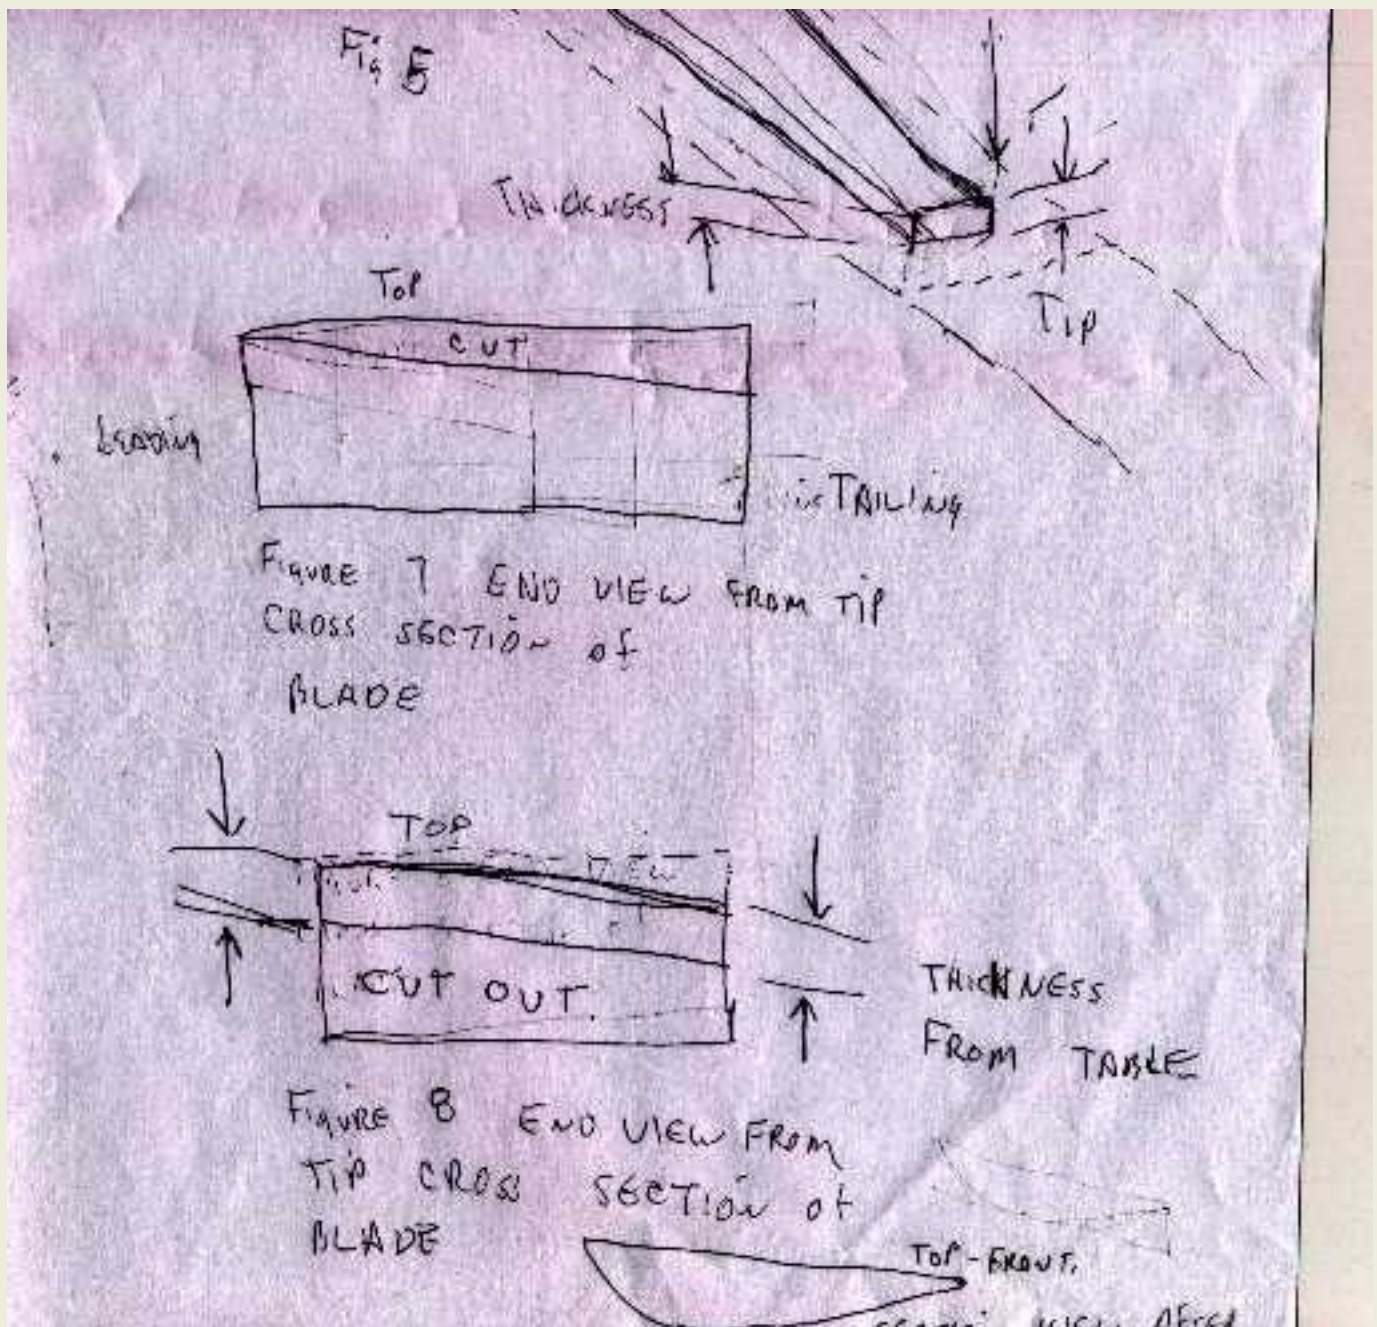 Fig 5
THICKNESS
Tip
Top
CUT
LEADING
TAILING
FIGURE 7 END VIEW FROM TIP
CROSS SECTION of
BLADE
TOP
VIEW
CUT OUT.
THICKNESS
FROM TABLE
FIGURE 8 END VIEW FROM
TIP CROSS SECTION of
BLADE
TOP-FRONT.
VIEW AFTER